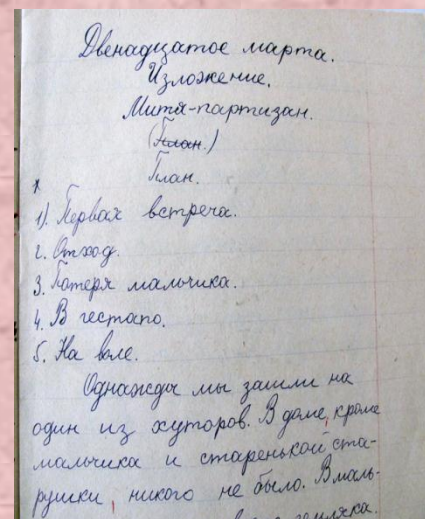 Двенадцатое марта.
Изложение.
Митя-партизан.
(План.)
План.
1). Первах встреча.
2. Отход.
3. Потеря мальчика.
4. В гестапо.
5. На воле.
Однажды мы зашли на
один из хуторов. В доме, кроме
мальчика и старенькой ста-
рушки, никого не было. В маль-
земляка.